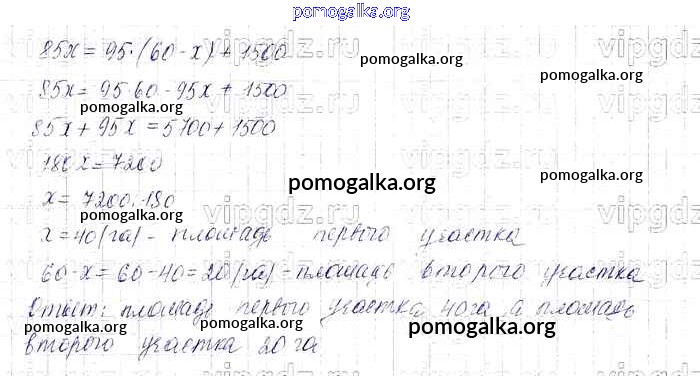 pomogalka.org
85x = 95·(60 - x) + 1500
pomogalka.org
85x = 95·60 - 95x + 1500
pomogalka.org
pomogalka.org
85x + 95x = 5700 + 1500
180x = 7200
pomogalka.org
pomogalka.org
x = 7200:180
pomogalka.org
x = 40 (га) - площадь первого участка
pomogalka.org
60 - x = 60 - 40 = 20 (га) - площадь второго участка
Ответ: площадь первого участка 40 га а площадь
pomogalka.org
pomogalka.org
pomogalka.org
второго участка 20 га.